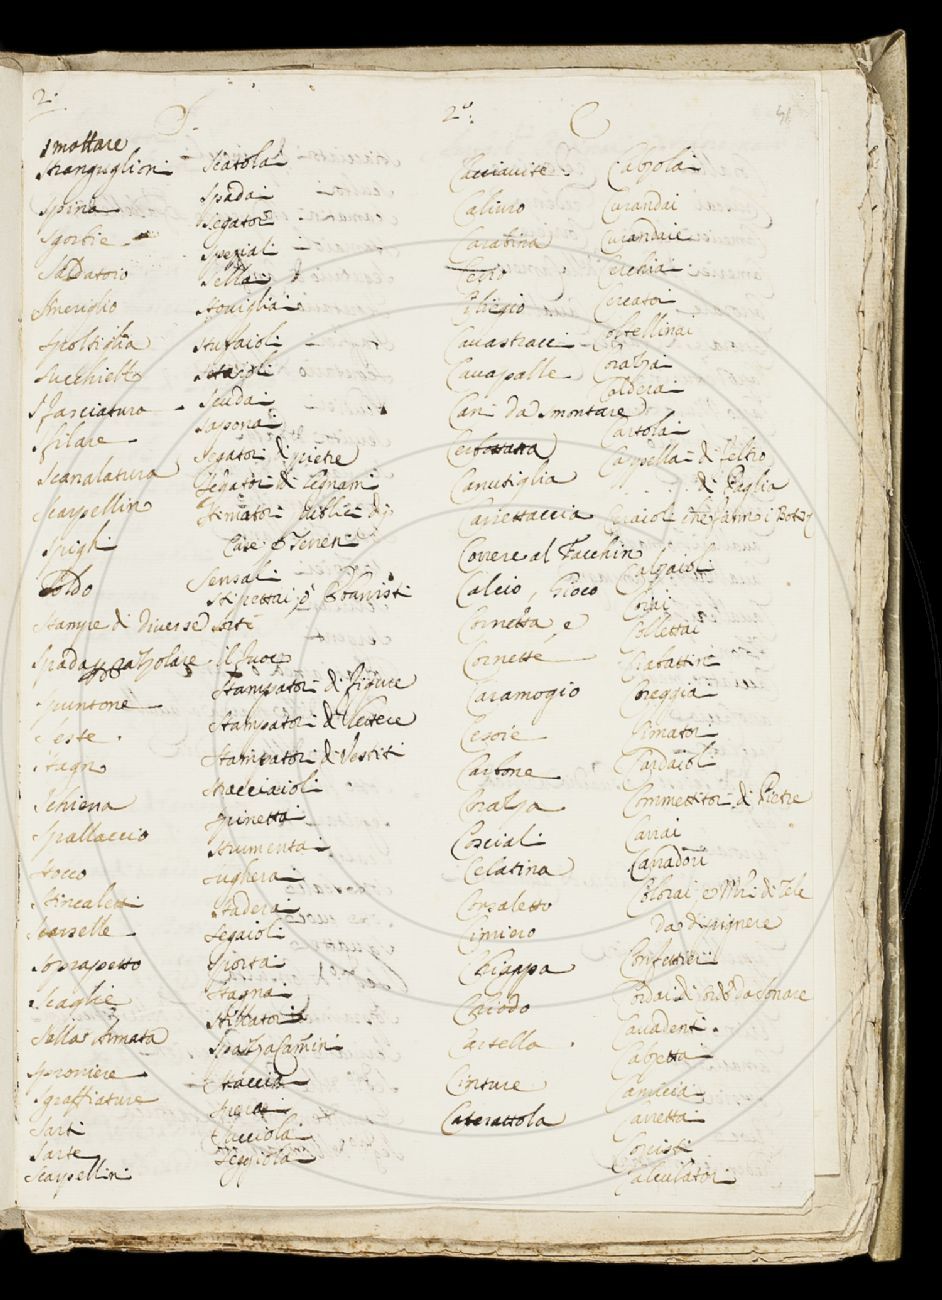 2.
S.
smottare
stranguglioni
spina
sgorbie
saldatoio
smeriglio
spoltiglia
succhietto
sfasciatura
sfilare
scanalatura
scarpellino
spighi
soldo
stampe di diverse sorti
spada
spuntone
teste
stagno
schiena
spallaccio
stocco
stincaletti
scarselle
soprapetto
scaglie
sella armata
sproniere
sgraffiature
sarti
sarte
scarpellini
scatolai
spadai
segatori
speziali
sellai
stovigliai
stufaioli
setaioli
scudai
saponai
segatori di pietre
segatori di legnami
stimatori publici di
case e terreni
sensali
stipettai, o Ebanisti
stampatori di figure
stampatori di lettere
stampatori di vestiti
stracciaioli
spinettai
strumentai
sugherai
staderai
segaioli
sportai
stagnai
stillatori
spazzacamini
staccia
seggiolai
2a.
C
Cacciavite
Calivro
Carabina
Cesto
Ciliegio
Cavastracci
Cavapalle
Cani da smontare
Canutiglia
Cariettaccia
Correre al Facchino
Calcio, Gioco
Cornetta, e
Cornette
Caramogio
Cesoie
Carbone
Corazza
Cosciali
Celatina
Corsaletto
Cimiero
Chiappa
Chiodo
Cartella
Cinture
Caterattola
Calzolai
Curandai
Curandaie
Cerchiai
Cercatori
Coltellinai
Corazzai
Calderai
Cartolai
Cappellai di Feltro
. . . . di Paglia
Calzaioli
Coiai
Collettai
Ciabattini
Coreggiai
Cimatori
Cardaioli
Commettitori di Pietre
Carrai
Cavadori
Colorai, e Mri. di Tele
da dipignere
Confettieri
Cordai di corde da sonare
Cavadenti.
Calzettai
Camicia
Carrettai
Coristi
Calculatori